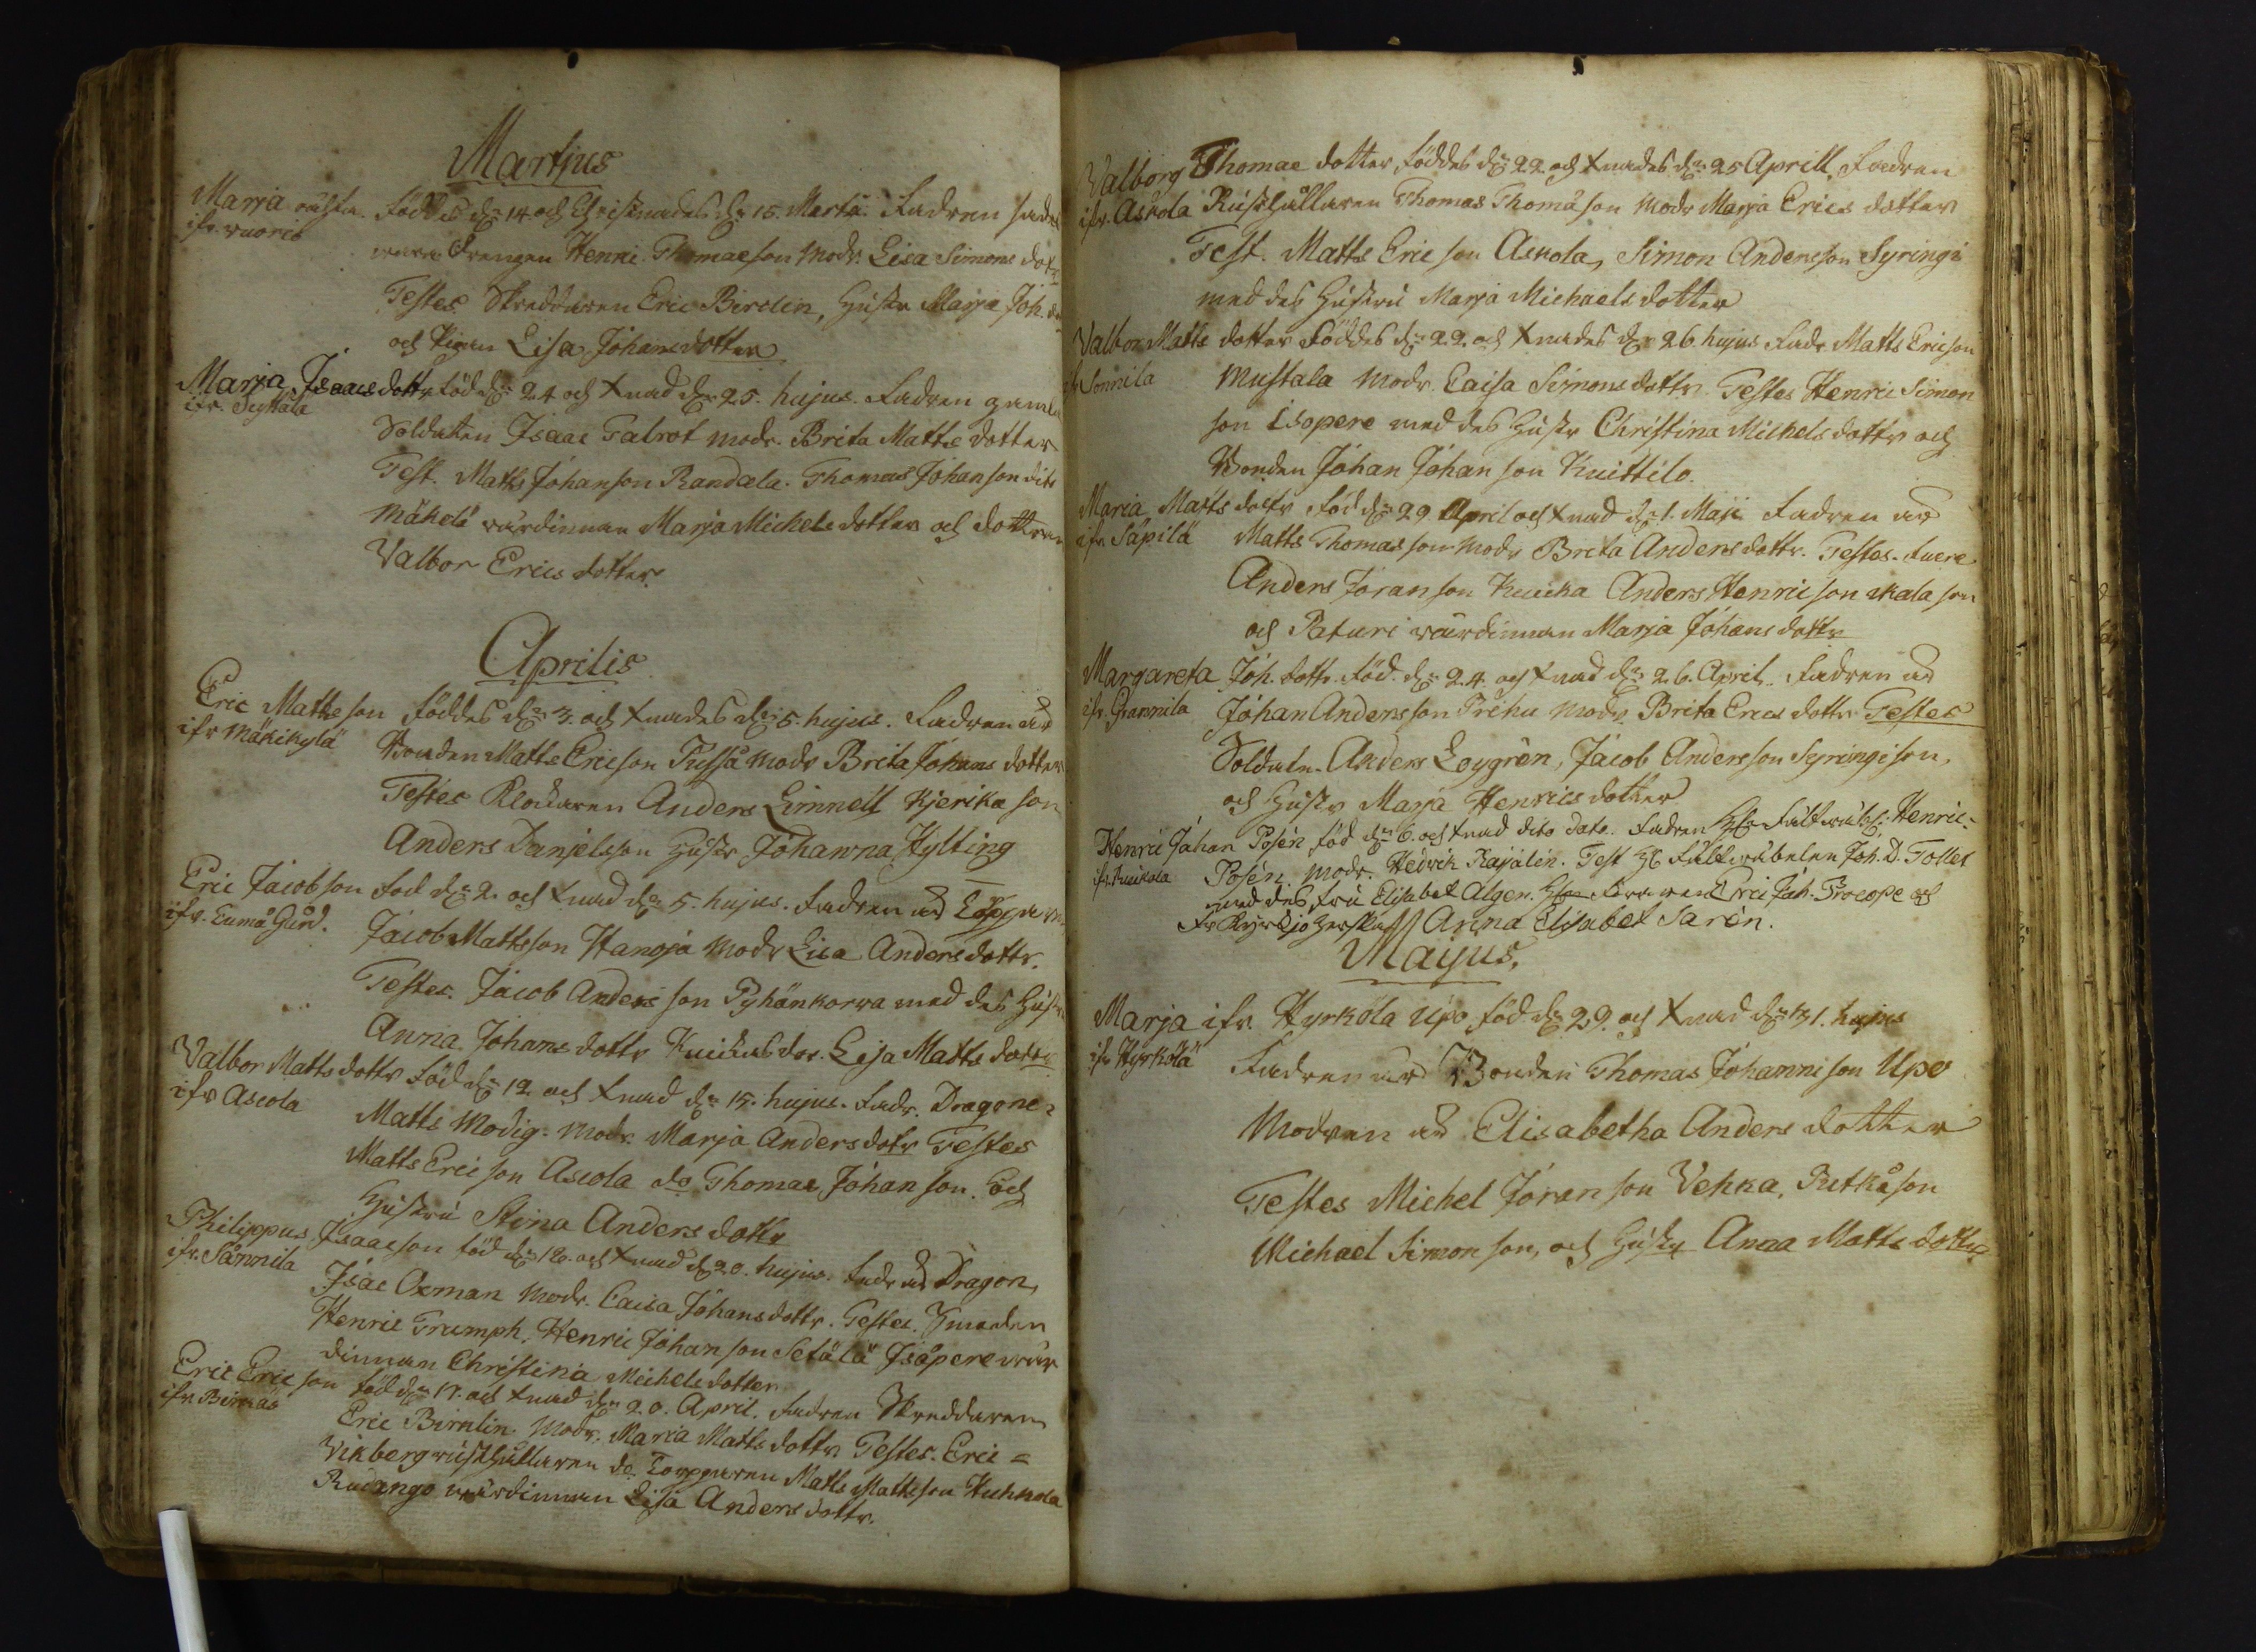 Martius
Marja oächta. föddes d: 14 och Christnades d: 15. Martii. Fadren
ifr. vuoris Drengen Henric Thomaeson Modr. Lisa Simons dotr
Testes Skreddaren Eric Birelin, Hustr Marja Joh. d
och Pigan Lisa Johansdotter
Marja Isaacs dottr föd d: 24 och Xnad d: 25. hujus. Fadren gamla
ifr. Seppälä Soldaten Isaac Talrot modr. Brita Matts dotter
Test. Matts Johanson Randala. Thomas Johanson dito
Mäkelä wärdinnan Marja Michels dotter och dottren
Valbor Erics dotter.
Aprilis
Eric Mattsson föddes d: 3. och Xnades d: 5. hujus. Fadren är
ifr Mäkikylä Bonden Matts Ericson Pessa Modr Brita Johans dotter
Testes Klockaren Anders Limnell Kjerika son
Anders Danjelsson Hustr Johanna Hylting
Eric Jacobson Föd d: 2. och Xnad d: 5. hujus. Fadren är
ifr. Eumä Gård. Jacob Mattsson Hanoja Modr Lisa Andersdottr.
Testes. Jacob Andersson Pyhänkorwa med des Hustr
Anna Johans dottr Lisa Matts dottr
Valbor Matts dottr föd d: 12. och Xnad d: 15. hujus. Fadr. Dragone
ifr Ascola Matts Modig. Modr. Marja Andersdotr Testes
Matts Ericson Ascola do Thomas Johanson. och
Hustru Stina Anders dottr
Philippus Isaacson föd d: 18. och Xnad d: 20. hujus. Fadr är Dragon
ifr. Sännila Isac Oxman Modr. Caisa Johansdottr. Testes.
Henric Trumph. Henric Johanson Setälä Isopere wär
dinnan Christina Michelsdotter
Eric Ericson föd d: 17. och Xnad d: 20. April. Fadren Skreddaren
ifr. Birnäs Eric Birnlin. Modr. Maria Matts dottr Testes. Eric =
Vikberg rusthållaren do. Torpparen Matts Mattsson Huhkola
Rudango wärdinnan Lisa Andersdottr.
Valborg Thomae dotter, föddes d: 22 och Xnades d: 25 Aprill, Fadren
ifr. Askola Rusthållaren Thomas Thomason Modr Marja Erics dotter
Test. Matts Ericson Askola, Simon Andersson Syringi
med des Hustru Marja Michaelsdotter
Valbor Matts dotter föddes d: 22. och Xnades d: 26. hujus Fadr Matts Ericson
ifr Sonnila Mustala Modr. Caisa Simonsdottr. Testes Henric Simon
son Isopere med des Hustr Christina Michelsdottr och
Bonden Johan Johanson Kuittilo.
Maria Matts dottr föd d: 29 April och Xnad d: 1. Maji. Fadren är
ifr Säpilä Matts Thomasson Modr Brita Andersdottr. Testes. Fuere
Anders Joranson Kuicka Anders Henricson Skalason
och Paturi wärdinnan Marja Johansdottr
Margareta Joh. dottr. föd. d: 24. och Xnad d: 26. April. Fadren är
ifr. Grannila Johan Andersson Prihu Modr Brita Erics dottr Testes
Soldatn. Anders Loygren, Jacob Andersson Syringison,
och Hustr Marja Henrics dotter
Henric Johan Posén föd d: 6. och Xnad dito dato. Fadren Henric
ifr. Kuckola Posén. Modr. Hedvik Kajalin. Test Joh. D. Tollet
med des fru Elisabet Algen. Eric Joh. Procope och
Anna Elisabet Sarén.
Majus.
Marja ifr. Hyrkölä Upo föd d: 29. och Xnad d: 31. hujus
ifr Hyrkölä Fadren är Bonden Thomas Johanneson Upo
Modren är Elisabetha Anders dotter
Testes Michel Joranson Vehka, Ritkåson
Michael Simonson, och Hustr Anna Matts dotter